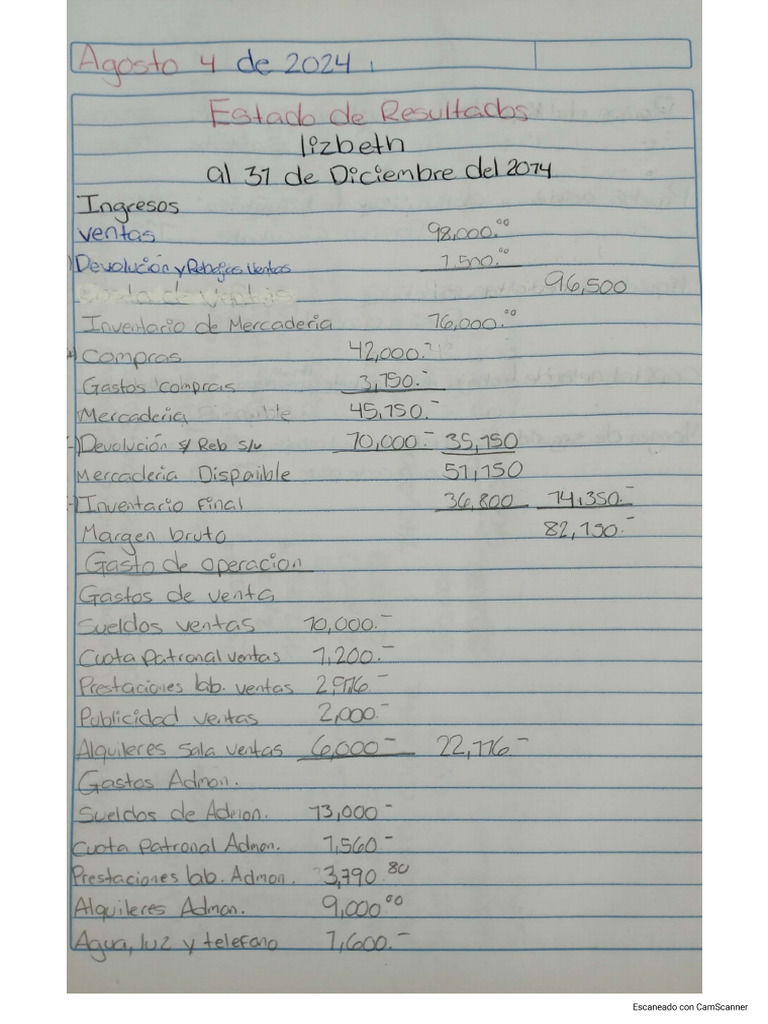 Agosto 4 de 2024
Estado de Resultados
lizbeth
al 31 de Diciembre del 2014
Ingresos
Ventas 98,000.00
Devolución y Rebajas Ventas 1,500.00 96,500
Costo de Ventas
Inventario de Mercaderia 16,000.00
Compras 42,000.
Gastos compras 3,150.-
Mercaderia 45,150.-
(-) Devolución s/ Reb s/v 10,000.- 35,150
Mercaderia Dispoible 51,150
(-) Inventario Final 36,800 14,350.-
Margen bruto 82,150.-
Gasto de operacion
Gastos de venta
Sueldos ventas 10,000.-
Cuota Patronal ventas 1,200.-
Prestaciones lab. ventas 2,916.-
Publicidad ventas 2,000.-
Alquileres Sala ventas 6,000- 22,116.-
Gastos Admon.
Sueldos de Admon. 13,000-
Cuota Patronal Admon. 1,560.-
Prestaciones lab. Admon. 3,790.80
Alquileres Admon. 9,000.00
Agua, luz y telefono 1,600.-
Escaneado con CamScanner